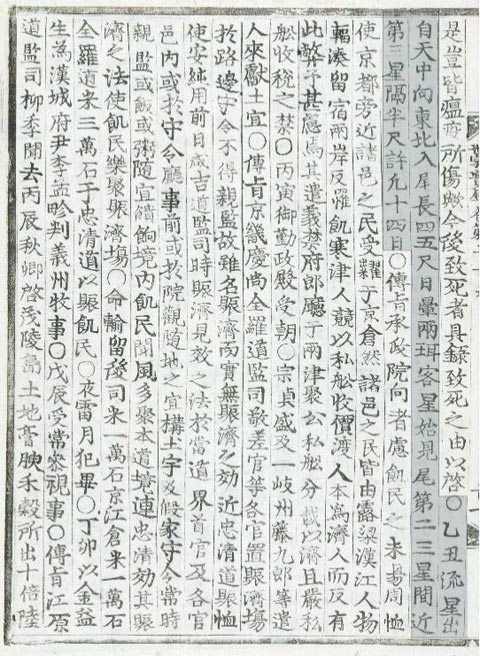 是豈皆瘟疫所傷歟今後致死者具錄致死之由以啓○乙丑流星出
自天中向東北入尾長四五尺日暈兩珥客星始見尾第二三星間近
第三星隔半尺許凡十四日○傳旨承政院向者慮飢民之未易周恤
使京都旁近諸邑之民受糶于京倉然諸邑之民皆由露梁漢江人物
輻湊留宿兩岸反罹飢寒津人競以私船收價渡人本爲濟人而反有
此弊予甚慮焉其遣義禁府郎廳于兩津聚公私船分載以濟且嚴私
船收稅之禁○丙寅御勤政殿受朝○宗貞盛及一岐州藤九郎等遣
人來獻土宜○傳旨京畿慶尚全羅道監司敬差官等各官置賑濟場
於路邊守令不得親監故雖名賑濟而實無賑濟之効近忠清道賑恤
使安純用前日咸吉道監司時賑濟見效之法於當道界首官及各官
邑內或於守令廳事前或於院觀隨地之宜構土宇及假家守令常時
親監或飯或粥隨宜饋餉境內飢民聞風多聚本道境連忠清効其賑
濟之法使飢民樂聚賑濟場○命輸留後司米一萬石京江倉米一萬石
全羅道米三萬石于忠清道以賑飢民○夜雷月犯畢○丁卯以金益
生爲漢城府尹李孟畛判義州牧事○戊辰受常參視事○傳旨江原
道監司柳季聞去丙辰秋卿啓茂陵島土地膏腴禾穀所出十倍陸